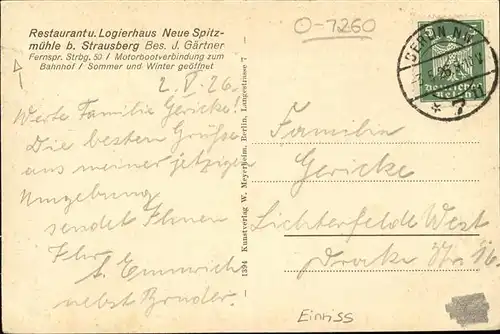 Restaurant u. Logierhaus Neue Spitz-
mühle b. Strausberg Bes. J. Gärtner
Fernspr. Strbg. 50 / Motorbootverbindung zum
Bahnhof / Sommer und Winter geöffnet
O-1260
2. V. 26.
Werte Familie Gericke!
Die besten Grüße
aus meiner jetzigen
Umgebung
sendet Ihnen
Ihr
Emmrich
nebst Bruder.
1394 Kunstverlag W. Meyerheim, Berlin, Langestrasse 7
BERLIN
* 7
Familie
Gericke
Lichterfelde West
Drake Str. 16
Einriss